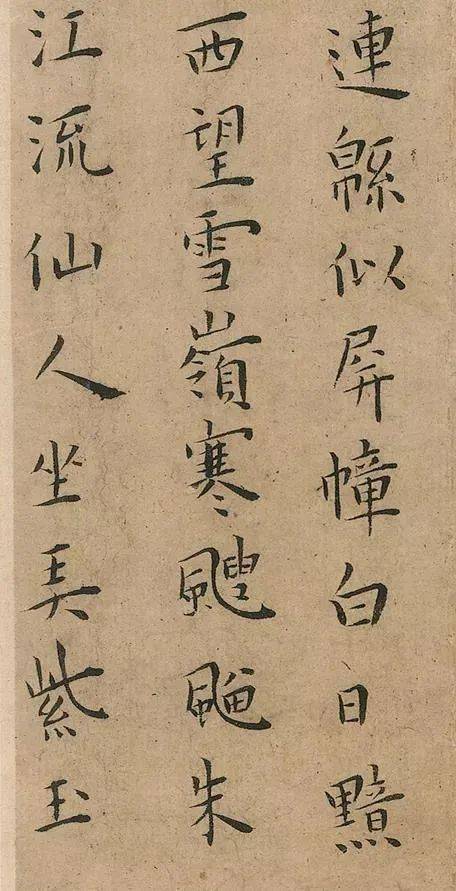 連緜似屏幛白日黯
西望雪嶺寒颼飀朱
江流仙人坐吴紫玉